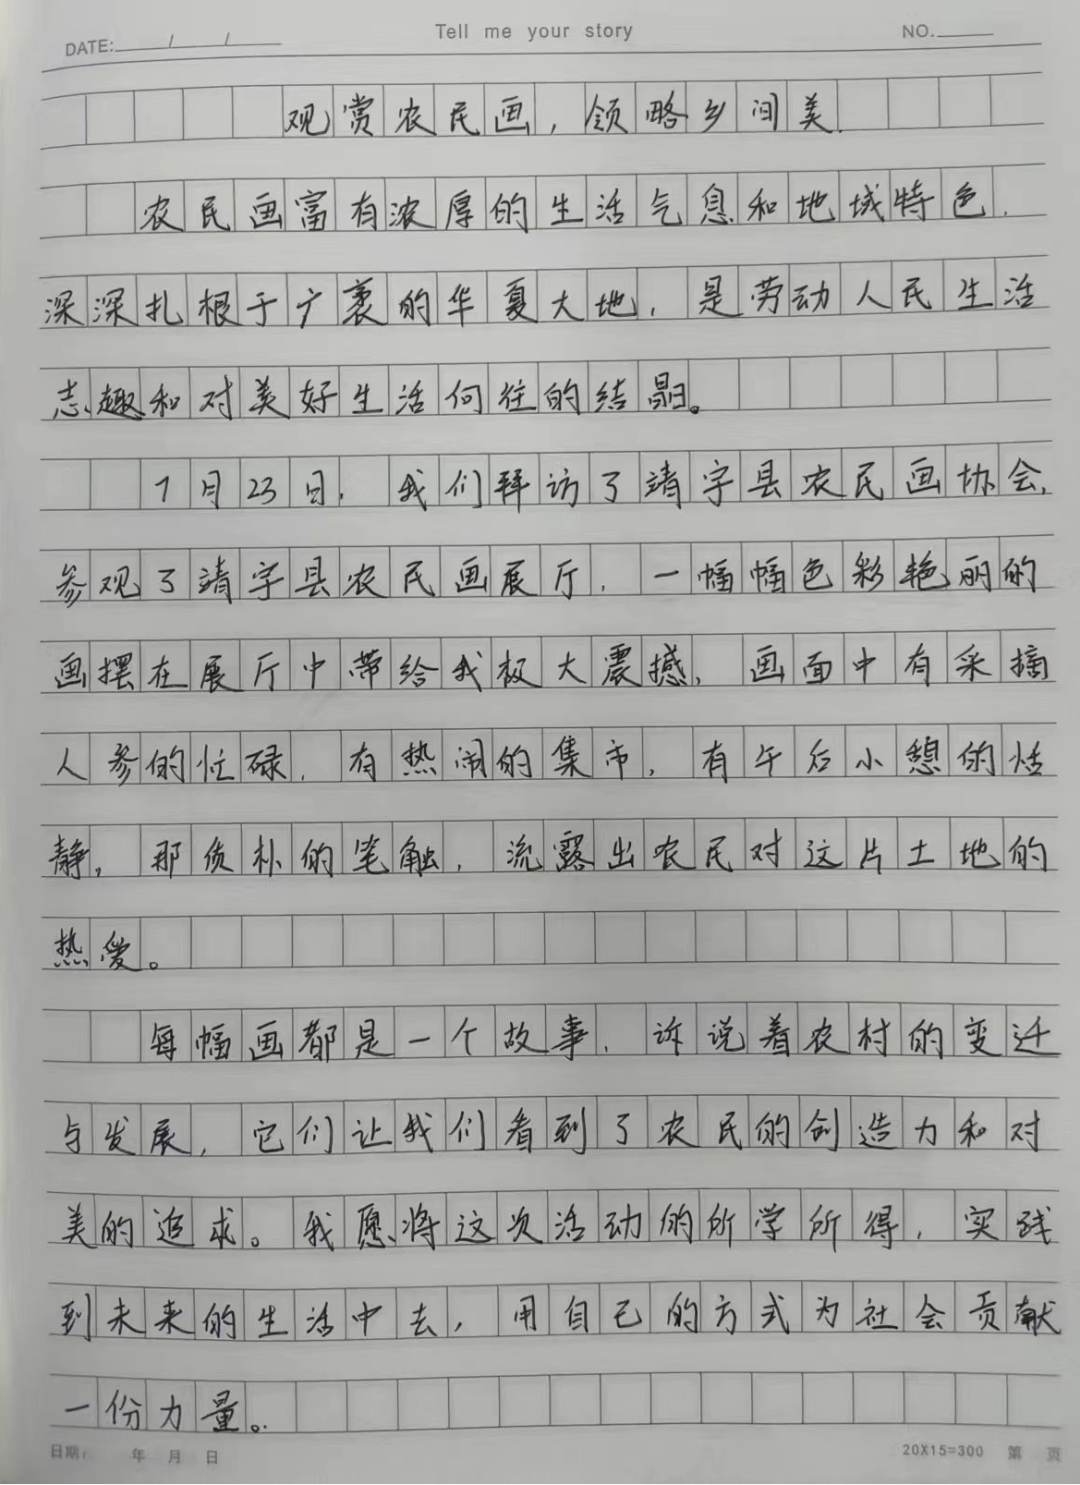 DATE: / / Tell me your story NO.
观赏农民画，领略乡间美.
农民画富有浓厚的生活气息和地域特色.
深深扎根于广袤的华夏大地，是劳动人民生活
志趣和对美好生活向往的结晶。
7月23日，我们拜访了靖宇县农民画协会,
参观了靖宇县农民画展厅，一幅幅色彩艳丽的
画摆在展厅中带给我极大震撼，画面中有采摘
人参的忙碌，有热闹的集市，有午后小憩的恬
静，那质朴的笔触，流露出农民对这片土地的
热爱。
每幅画都是一个故事，诉说着农村的变迁
与发展，它们让我们看到了农民的创造力和对
美的追求。我愿将这次活动的所学所得，实践
到未来的生活中去，用自己的方式为社会贡献
一份力量。
日期: 年 月 日 20X15=300 第 页